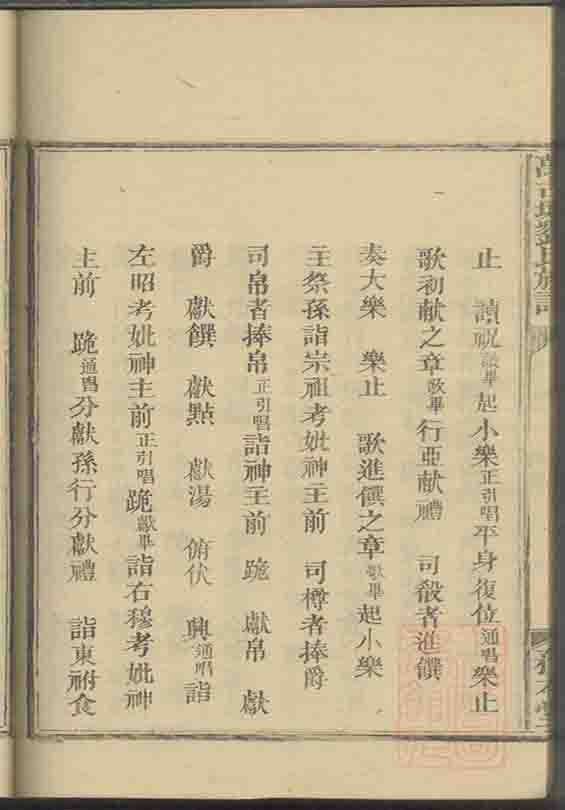 止　讀祝歌畢起小樂正引唱平身復位通唱樂止
歌初献之章歌畢行亞献禮　司殽者進饌
奏大樂　樂止　歌進饌之章歌畢起小樂
主祭孫詣宗祖考妣神主前　司樽者捧爵
司帛者捧帛正引唱詣神主前　跪　獻帛　獻
爵　獻饌　獻㸃　獻湯　俯伏　興通唱詣
左昭考妣神主前正引唱跪獻畢詣右穆考妣神
主前　跪通唱分獻孫行分獻禮　詣東祔食